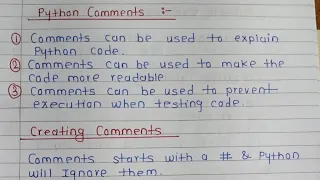 Python Comments :-
① Comments can be used to explain
Python code.
② Comments can be used to make the
code more readable
③ Comments can be used to prevent
execution when testing code.
Creating Comments
Comments starts with a # & Python
will Ignore them.